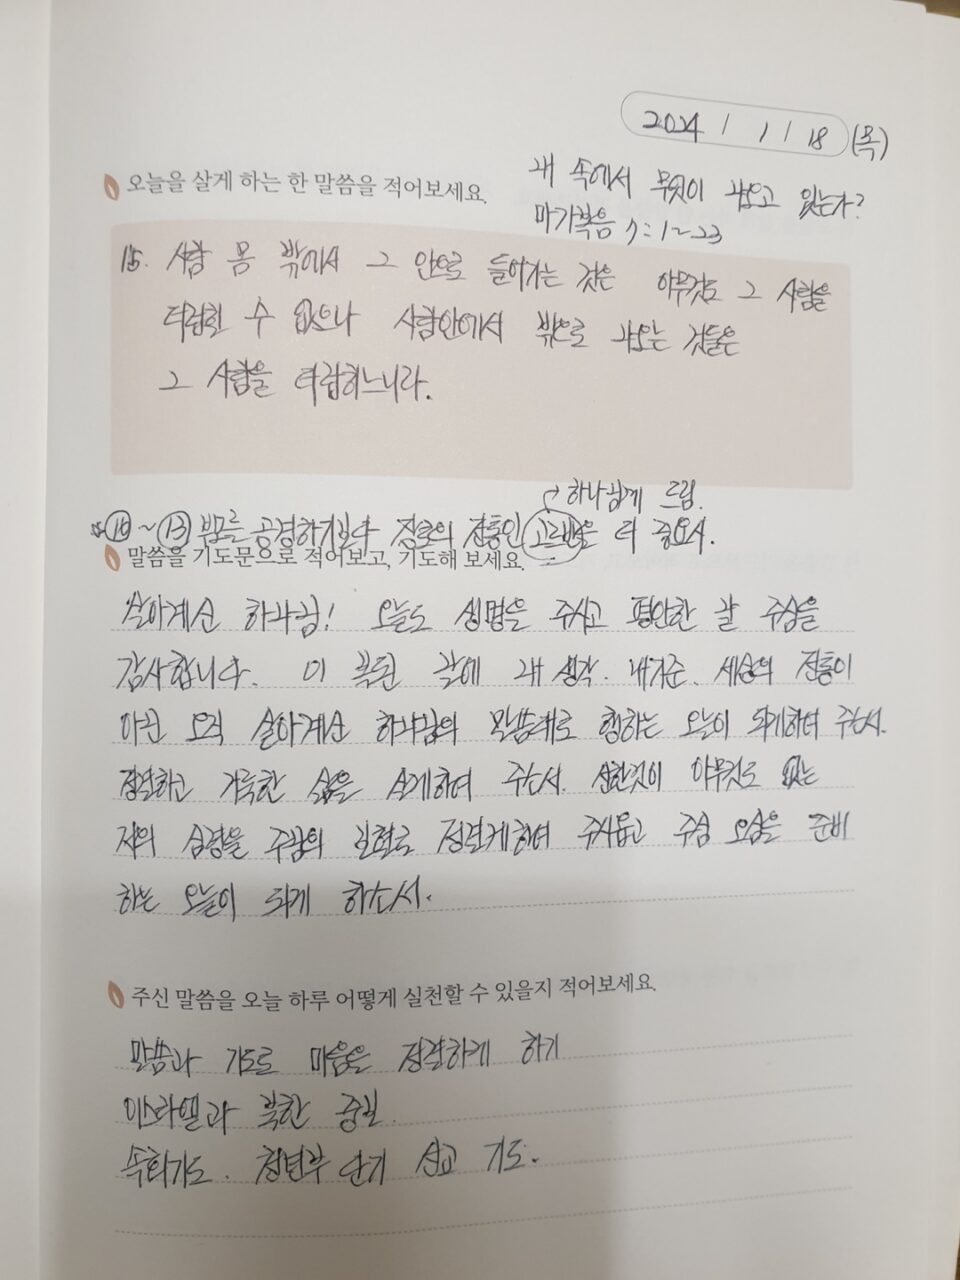 2024 / 1 / 18 (목)
오늘을 살게 하는 한 말씀을 적어보세요.
내 속에서 무엇이 나오고 있는가?
마가복음 7:1~23
15. 사람 몸 밖에서 그 안으로 들어가는 것은 아무것도 그 사람을
더럽힐 수 없으나 사람안에서 밖으로 나오는 것들은
그 사람을 더럽히느니라.
하나님께 드림.
⑩~⑬ 부모를 공경하기보다 장로의 전통인 고르반을 더 중요시.
말씀을 기도문으로 적어보고, 기도해 보세요.
살아계신 하나님! 오늘도 생명을 주시고 평안한 날 주심을
감사합니다. 이 복된 날에 내 생각. 내기준. 세상의 전통이
아닌 오직 살아계신 하나님의 말씀대로 행하는 오늘이 되게하여 주소서.
정결하고 거룩한 삶을 살게하여 주소서. 선한것이 아무것도 없는
저의 심령을 주님의 보혈로 정결케하여 주시옵고 주님 오심을 준비
하는 오늘이 되게 하소서.
주신 말씀을 오늘 하루 어떻게 실천할 수 있을지 적어보세요.
말씀과 기도로 마음을 정결하게 하기
이스라엘과 북한 중보
속회기도. 청년부 단기 선교 기도.